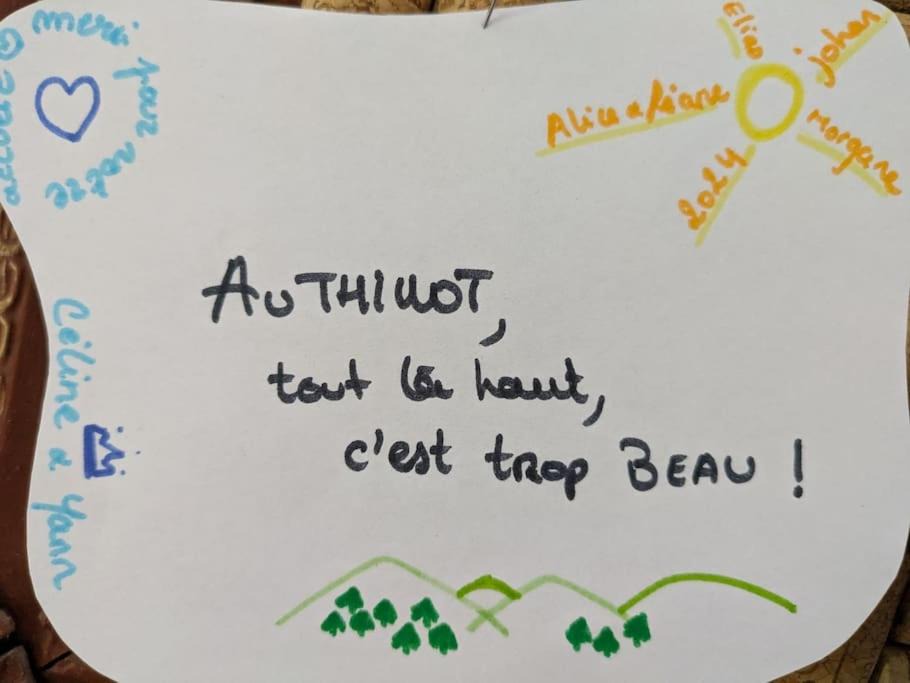 merci pour notre
Elino
johan
Alice & Liane
Morgane
2024
AU THILLOT,
tout là haut,
c'est trop BEAU !
Céline & Yann